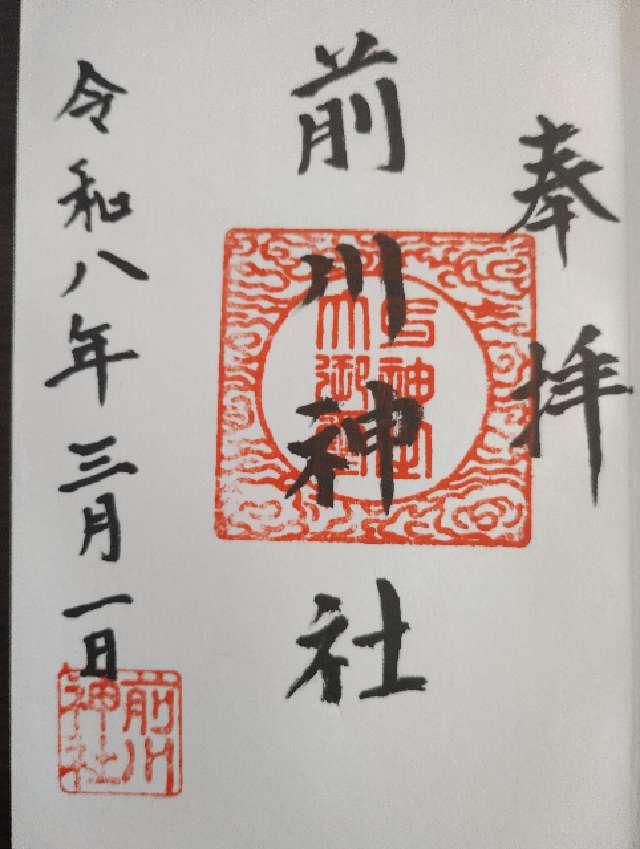 奉拝
前川神社
令和八年三月一日
前川
神社